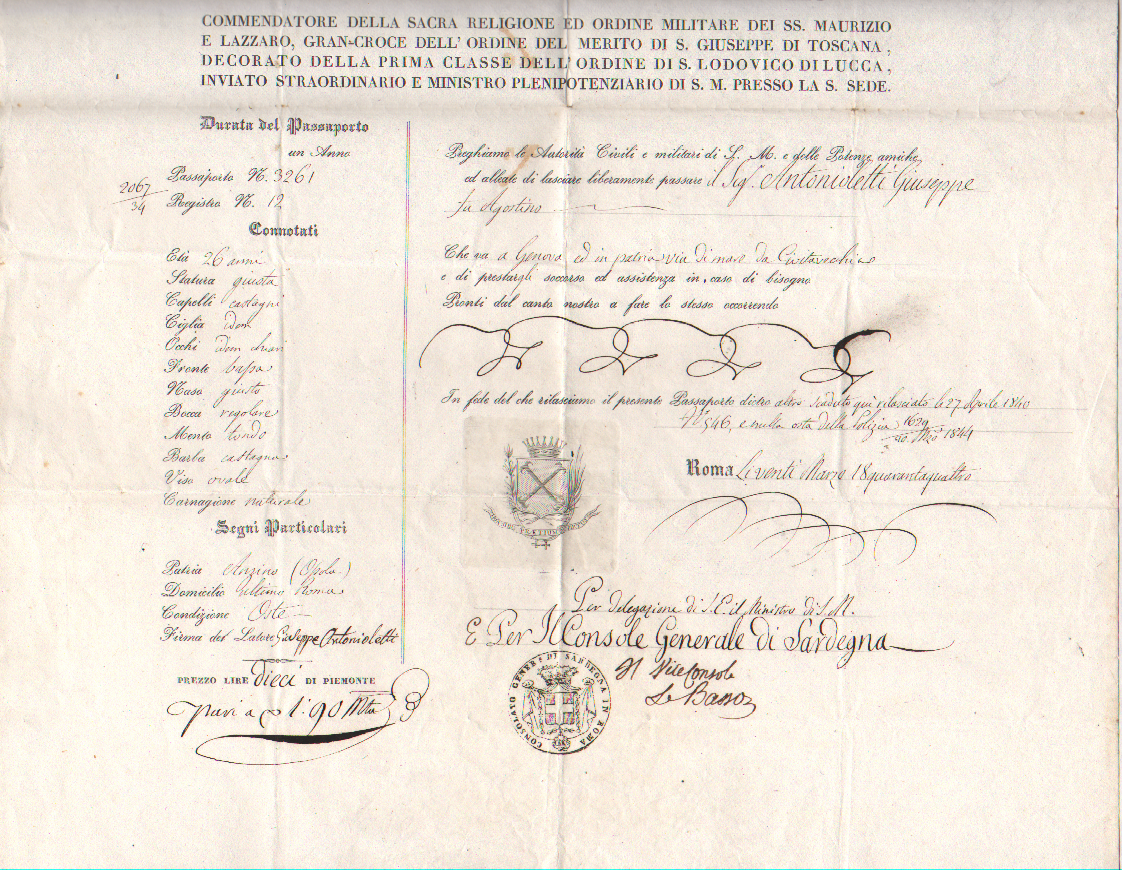 COMMENDATORE DELLA SACRA RELIGIONE ED ORDINE MILITARE DEI SS. MAURIZIO
E LAZZARO, GRAN-CROCE DELL' ORDINE DEL MERITO DI S. GIUSEPPE DI TOSCANA,
DECORATO DELLA PRIMA CLASSE DELL' ORDINE DI S. LODOVICO DI LUCCA,
INVIATO STRAORDINARIO E MINISTRO PLENIPOTENZIARIO DI S. M. PRESSO LA S. SEDE.
Durata del Passaporto
un Anno
Passaporto N. 3261
2067
34
Registro N. 12
Connotati
Età 26 anni
Statura giusta
Capelli castagni
Ciglia idem
Occhi idem
Fronte bassa
Naso giusto
Bocca regolare
Mento tondo
Barba castagna
Viso ovale
Carnagione naturale
Segni Particolari
Patria Anzino (Ossola)
Domicilio ultimo Roma
Condizione Oste
Firma del Latore Giuseppe Antonioletti
PREZZO LIRE dieci DI PIEMONTE
pari a 1:90
Preghiamo le Autorità Civili e militari di S. M. e delle Potenze amiche,
ed alleate di lasciare liberamente passare il Sig.r Antonioletti Giuseppe
fu Agostino
Che va a Genova ed in patria via di mare da Civitavecchia
e di prestargli soccorso ed assistenza in caso di bisogno
Pronti dal canto nostro a fare lo stesso occorrendo
In fede del che rilasciamo il presente Passaporto dietro altro scaduto qui rilasciato li 27 Aprile 1840
N.° 546, e nulla osta della Polizia 1629
20 Mzo 1844
Roma Li venti Marzo 18quarantaquattro
Per delegazione di S. E. il Ministro di S. M.
E Per Il Console Generale di Sardegna
Il ViceConsole
CONSOLATO GENER. DI SARDEGNA IN ROMA